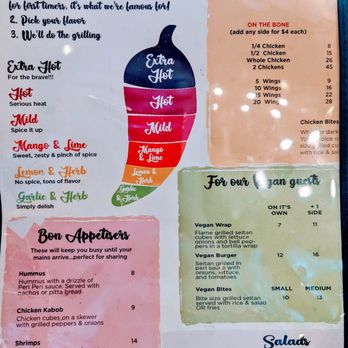 for first timers, it's what we're famous for!
2. Pick your flavor
3. We'll do the grilling
Extra Hot
For the brave!!!
Hot
Serious heat
Mild
Spice it up
Mango & Lime
Sweet, zesty & pinch of spice
Lemon & Herb
No spice, tons of flavor
Garlic & Herb
Simply delish
Extra
Hot
Hot
Mild
Mango
& Lime
Lemon
& Herb
Garlic
& Herb
ON THE BONE
(add any side for $4 each)
1/4 Chicken 8
1/2 Chicken 15
Whole Chicken 26
2 Chickens 45
5 Wings 9
10 Wings 16
15 Wings 22
20 Wings 28
Chicken Bites
rice & sal
For our Vegan guests
ON IT'S OWN
+ 1 SIDE
Vegan Wrap 7 11
Flame grilled seitan
cubes with lettuce
onions and bell pep-
pers in a tortilla wrap
Vegan Burger 12 16
Seitan grilled in
peri sauce with
onions, lettuce,
and tomatoes
Vegan Bites SMALL MEDIUM
Bite size grilled seitan 10 13
served with rice & salad
OR fries
Bon Appetisers
These will keep you busy until your
mains arrive...perfect for sharing
Hummus 8
Hummus with a drizzle of
Peri Peri sauce. Served with
nachos or pitta bread
Chicken Kabob 9
Chicken cubes on a skewer
with grilled peppers & onions
Shrimps 14
Salads